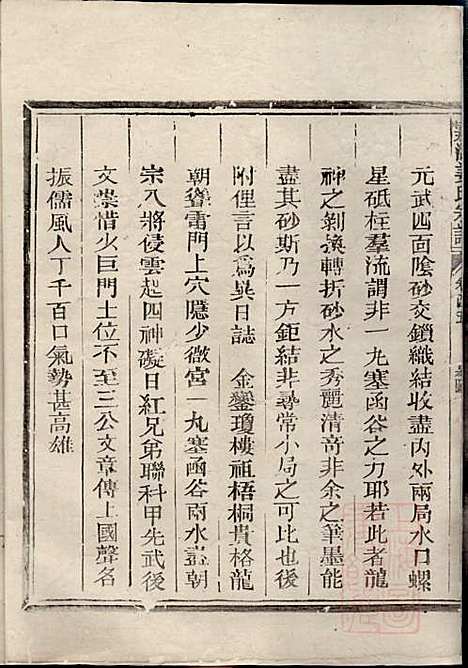 元武四面陰砂交鎖織結收盡內外兩局水口螺
星砥柱羣流謂非一丸塞函谷之力耶若此者龍
神之剝換轉折砂水之秀麗清奇非余之筆墨能
盡其砂斯乃一方鉅結非尋常小局之可比也後
附俚言以爲異日誌　金鑾瓊樓祖梧桐貴格龍
朝聳雷門上穴隱少微宮一丸塞函谷兩水盡朝
宗八將侵雲起四神礙日紅兄弟聯科甲先武後
文崇惜少巨門土位不至三公文章傳上國聲名
振儒風人丁千百口氣勢甚高雄